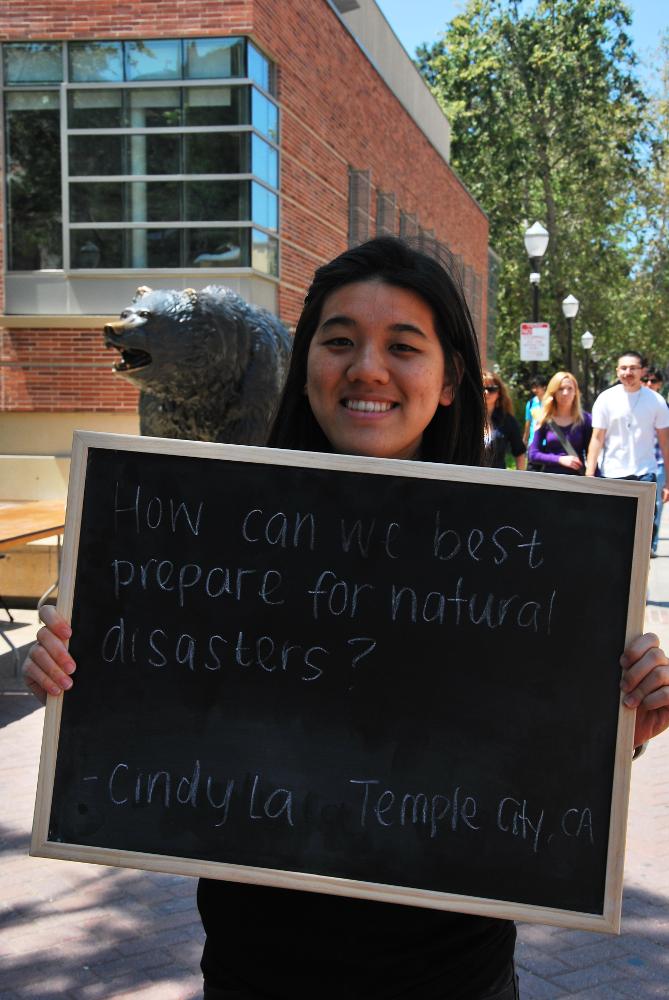 How can we best
prepare for natural
disasters?
-Cindy La Temple City, CA